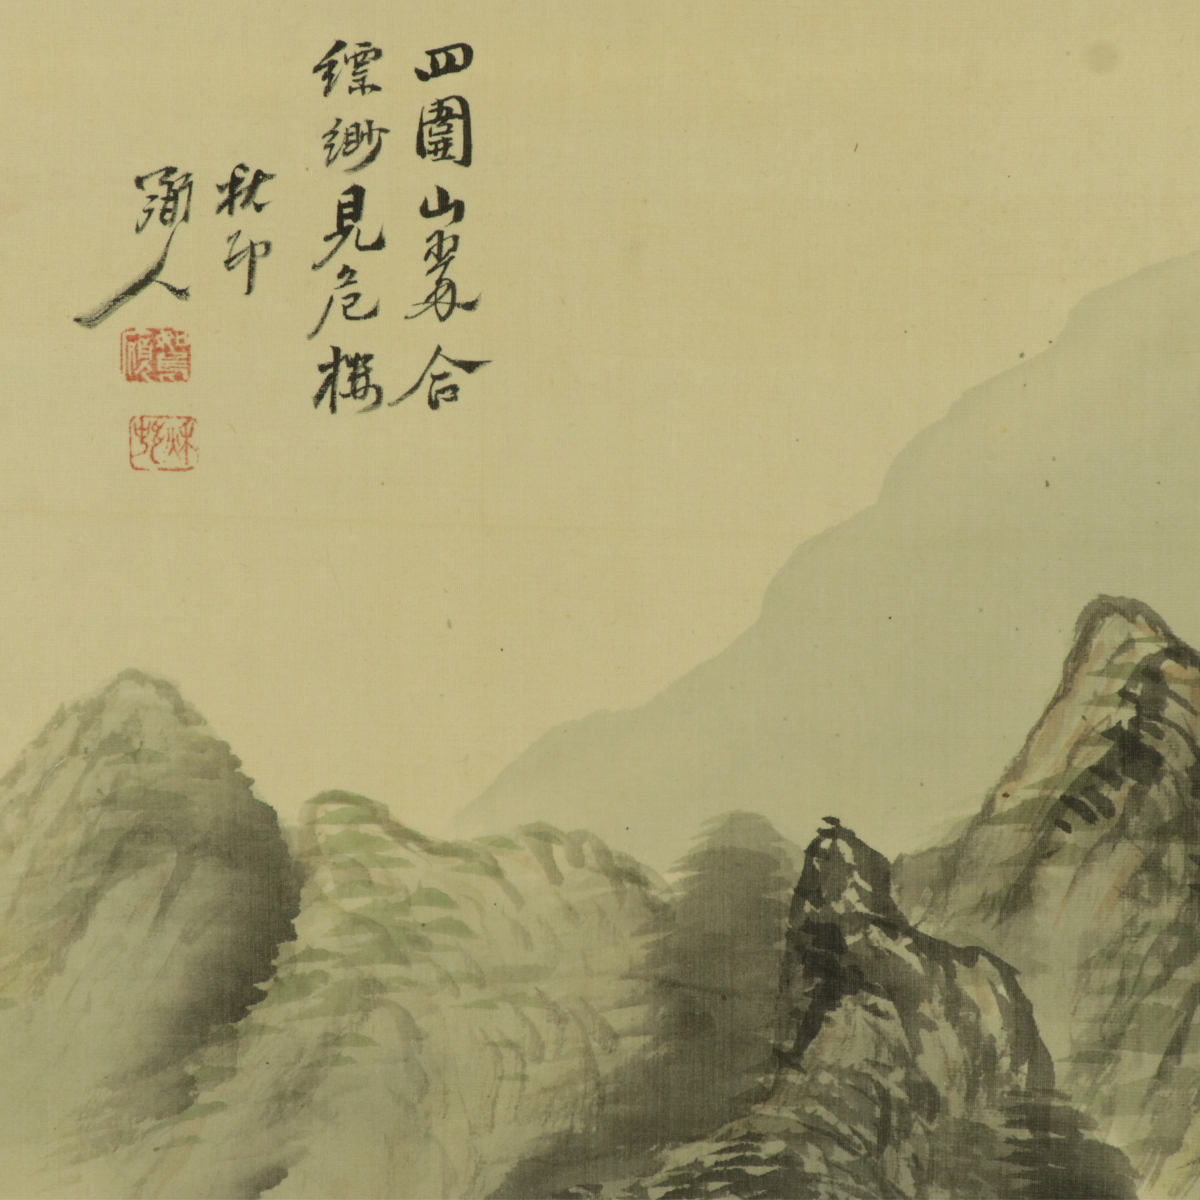 四圍山翠合
縹緲見危樓
秋印
人